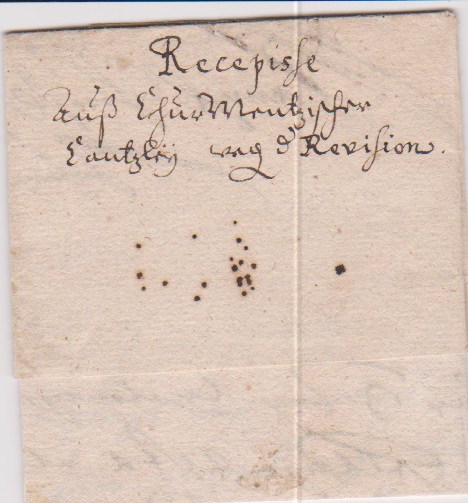 Recepisse
Auß ChurMentzischer
Cantzley weg d Revision.